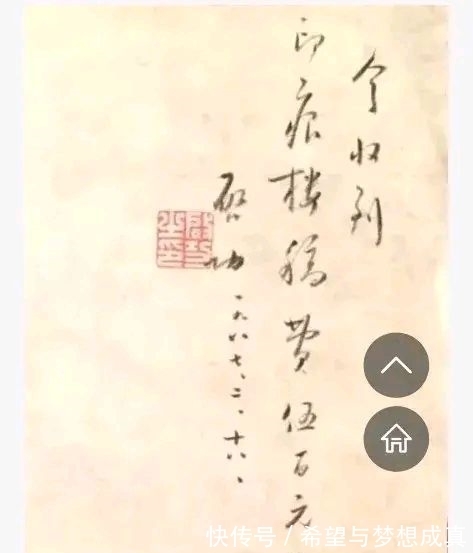 今收到
印痕楼稿费伍百元
启功
一九八七、二、十八、
快传号/希望与梦想成真